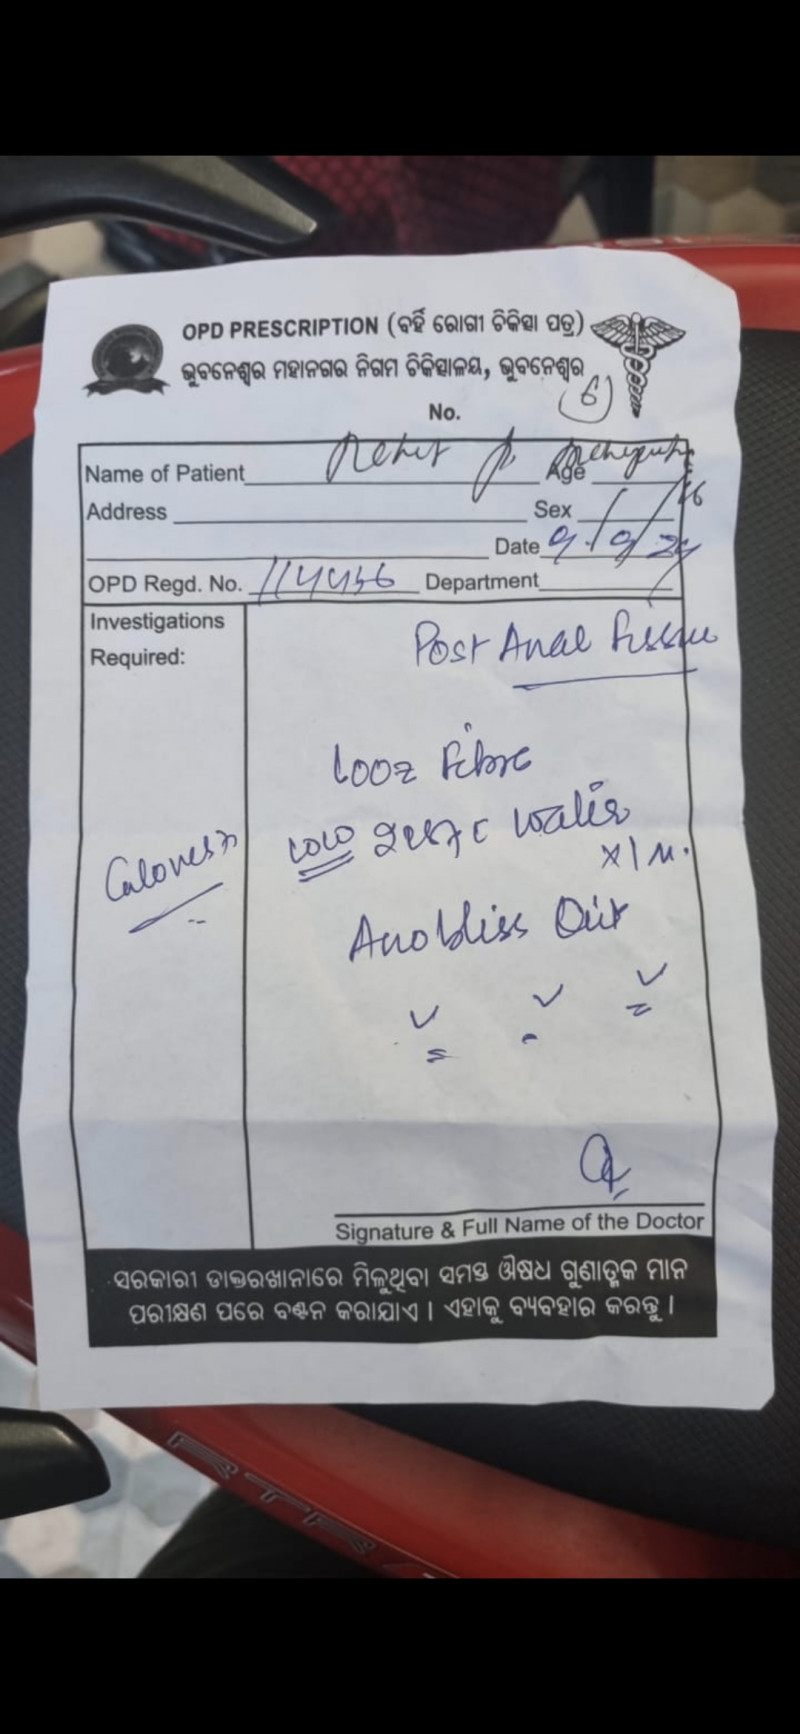 OPD PRESCRIPTION (ବର୍ହି ରୋଗୀ ଚିକିତ୍ସା ପତ୍ର)
ଭୁବନେଶ୍ୱର ମହାନଗର ନିଗମ ଚିକିତ୍ସାଳୟ, ଭୁବନେଶ୍ୱର
No. 6
Name of Patient Age
Address Sex
Date 9/9/24
OPD Regd. No. 114456 Department
Investigations
Required:
Post Anal Fissure
Looz Fibre
water
x 1 M.
Anobliss Oint
Signature & Full Name of the Doctor
ସରକାରୀ ଡାକ୍ତରଖାନାରେ ମିଳୁଥିବା ସମସ୍ତ ଔଷଧ ଗୁଣାତ୍ମକ ମାନ
ପରୀକ୍ଷଣ ପରେ ବଣ୍ଟନ କରାଯାଏ । ଏହାକୁ ବ୍ୟବହାର କରନ୍ତୁ ।
RTR